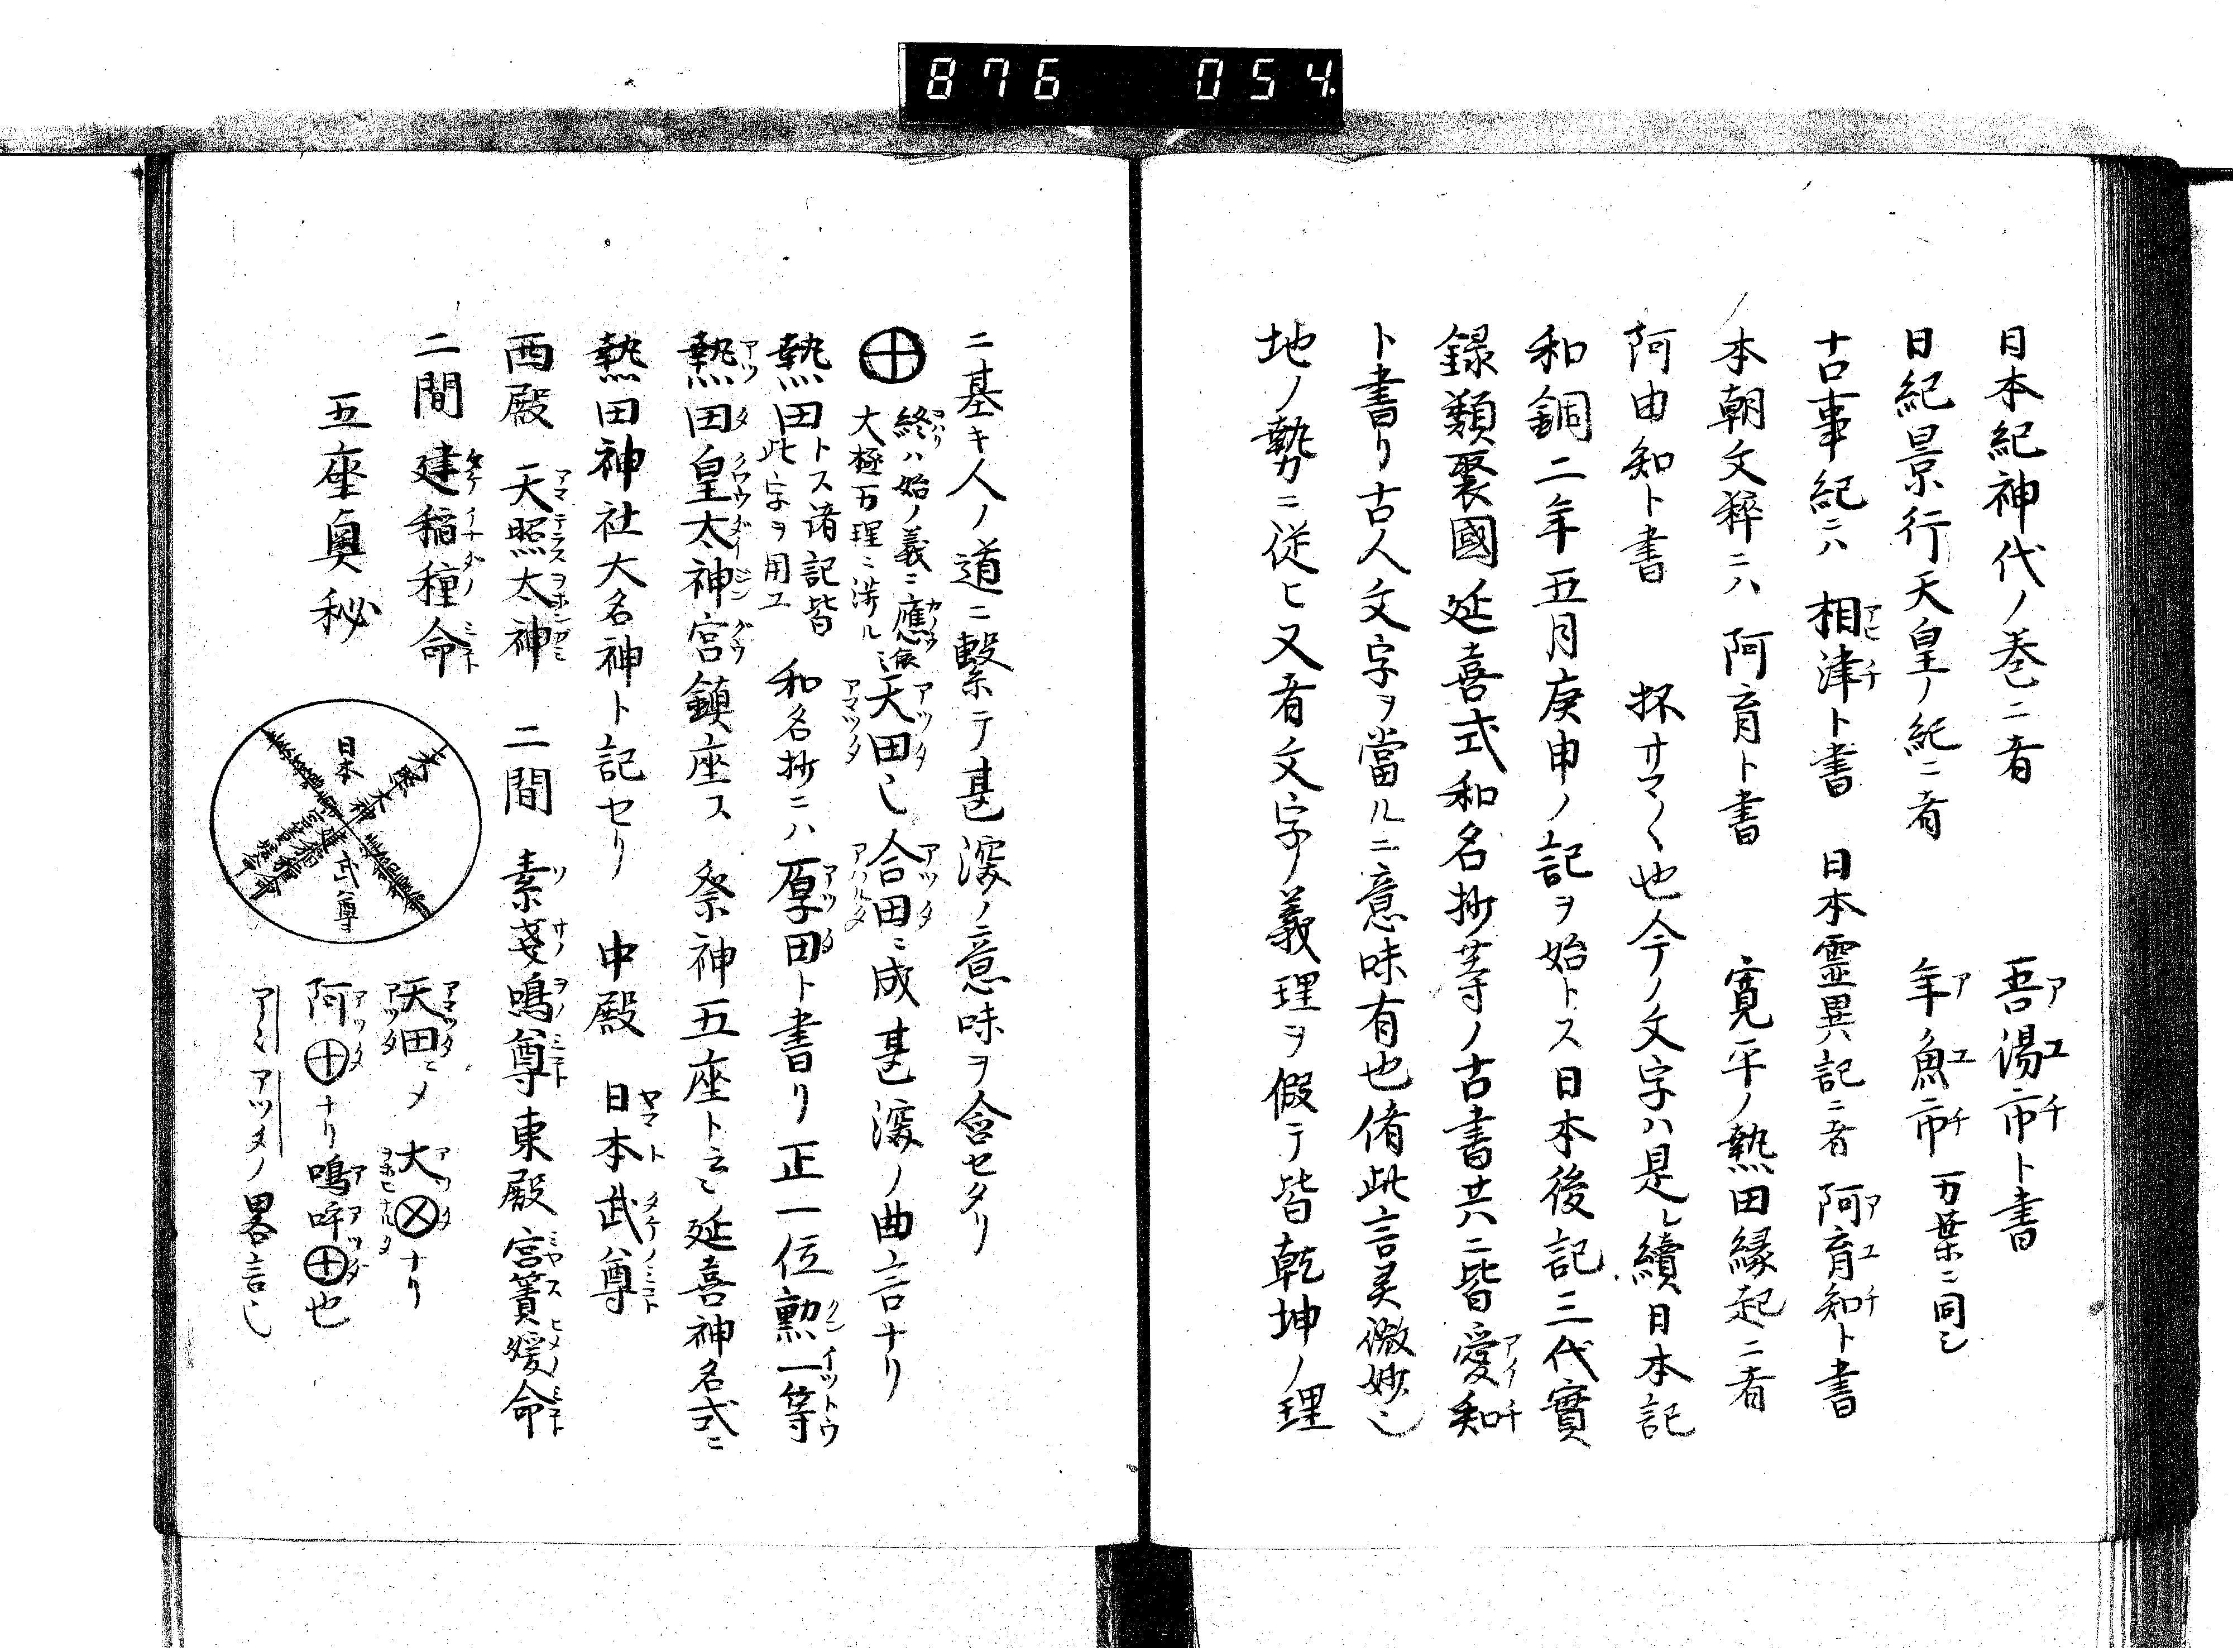 876 054.
日本紀神代ノ巻ニ者 吾湯市ト書
日紀景行天皇ノ紀ニ者 年魚市 万葉ニ同シ
古事紀ニハ 相津ト書 日本霊異記ニ者 阿育知ト書
本朝文粹ニハ 阿育ト書 寛平ノ熱田縁起ニ者
阿由知ト書 抔サマ〱也今ノ文字ハ是レ續日本記
和銅二年五月庚申ノ記ヲ始トス日本後記三代實
録類聚國延喜式和名抄等ノ古書共ハニ皆愛知
ト書リ古人文字ヲ當ルニ意味有也脩此言灵微妙也
地ノ勢ニ従ヒ又者文字ノ義理ヲ假テ皆乾坤ノ理
ニ基キ人ノ道ニ繋テ甚深ノ意味ヲ含セタリ
終ハ始ノ義ニ應
大極万理ニ渉ル
天田也 合田ニ成甚深ノ曲言ナリ
熱田 トス諸記皆
此字ヲ用ユ
和名抄ニハ厚田ト書リ正一位勲一等
熱田皇太神宮鎮座ス 祭神五座ト云々延喜神名式ニ
熱田神社大名神ト記セリ 中殿 日本武尊
西殿 天照太神 二間 素戔鳴尊東殿宮簀媛命
二間 建稲種命
五座奥秘
日本
武尊
天照太神
天田ニメ 大⊗ナリ
阿⊕ナリ鳴呼⊕也
アヽアツタノ畧言也